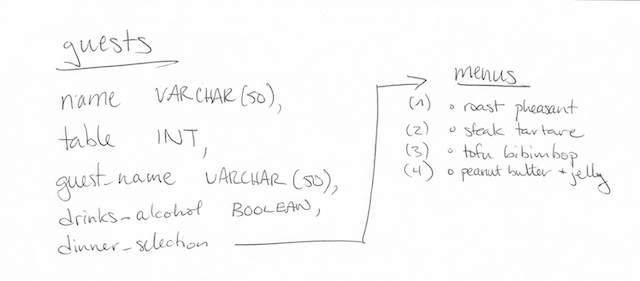 guests
name VARCHAR(50),
table INT,
guest_name VARCHAR(50),
drinks_alcohol BOOLEAN,
dinner_selection
menus
(1) o roast pheasant
(2) o steak tartare
(3) o tofu bibimbop
(4) o peanut butter + jelly